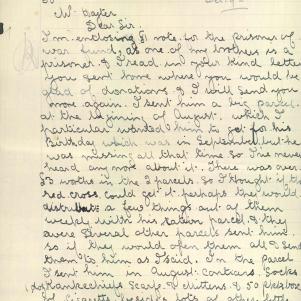 Mr Baxter
Dear Sir.
I'm enclosing £1 note for the prisoner of
war fund, as one of my brothers is a
prisoner. & I read in your kind letter
you sent home where you would be
glad of donations. & I will send you
more again. I sent him a big parcel
at the begining of August. which I
particular wanted him to get for his
Birthday which was in September. but he
was missing all that time so I've never
heard any more about it. There was over
£3 worths in the 2 parcels. so I thought if the
red cross could get it. perhaps they would
distribute a few things out of them
weekly with his ration parcel. & they
were several other parcels sent him.
so if they would open them all & send
them to him as I said. In the parcel
I sent him in August. contains. Socks
Hankerchiefs Scarf. & Mittens & 50 Pkts
of Cigaretts besides lots of other